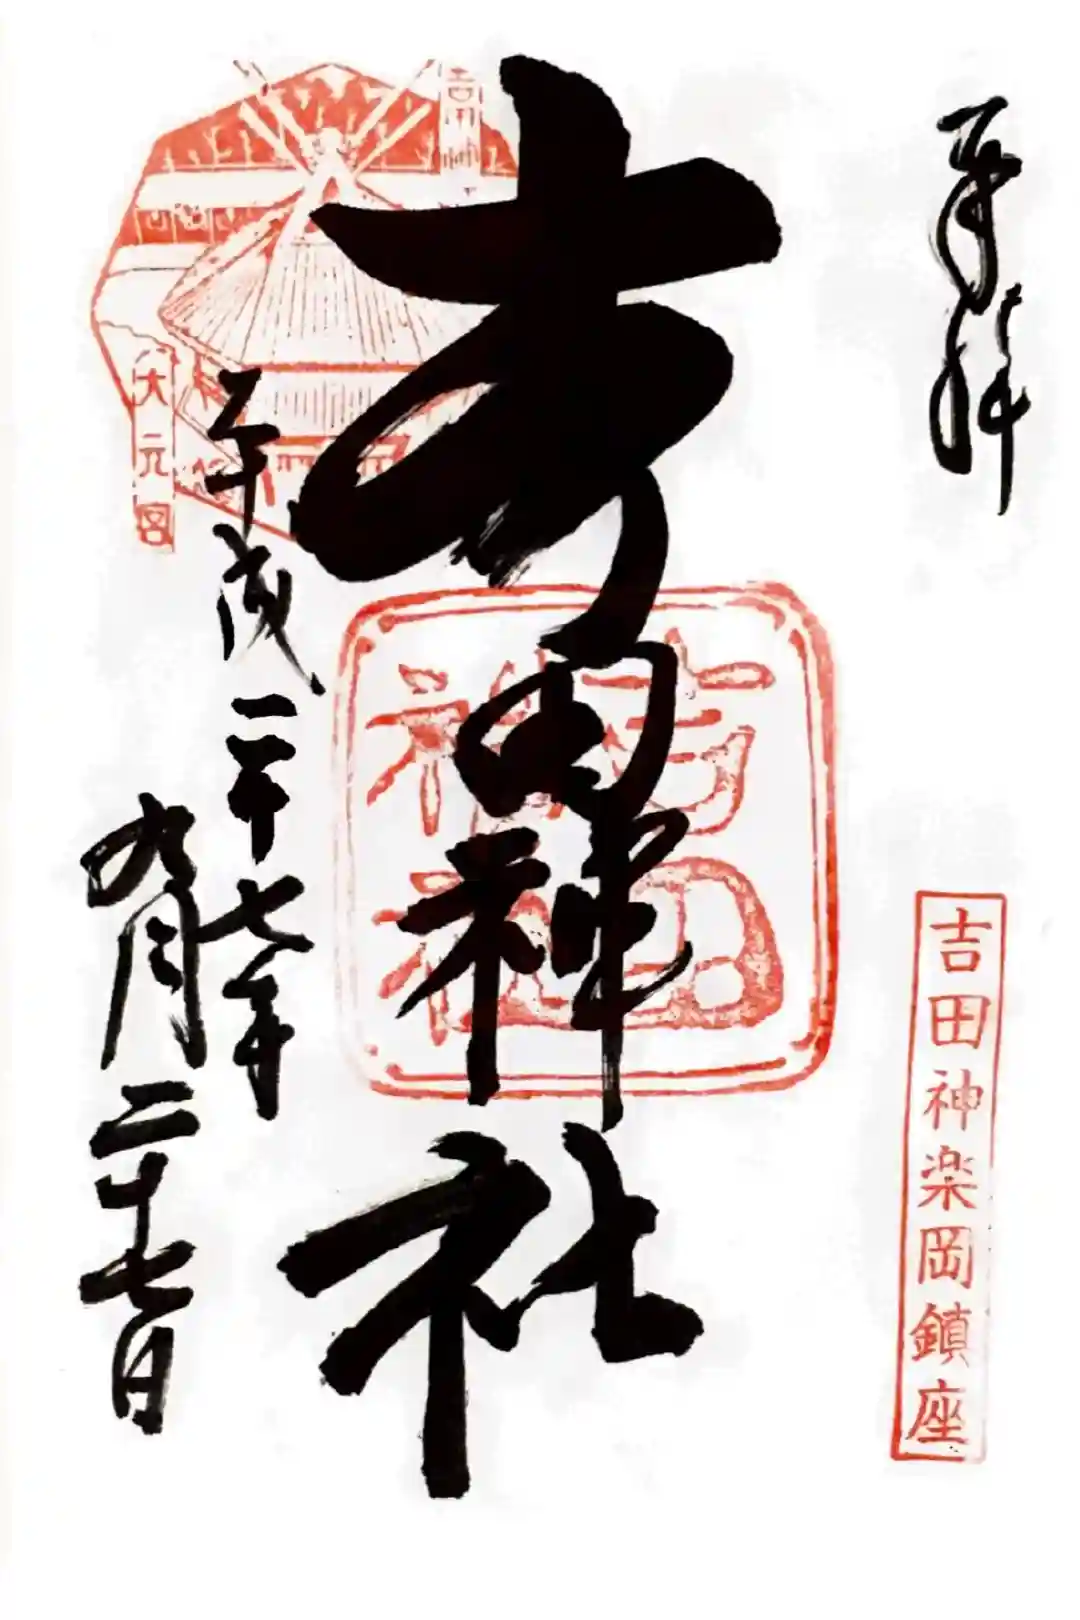 奉拝
吉田神楽岡鎮座
吉田神社
吉田神社
平成二十七年
九月二十七日
大元宮